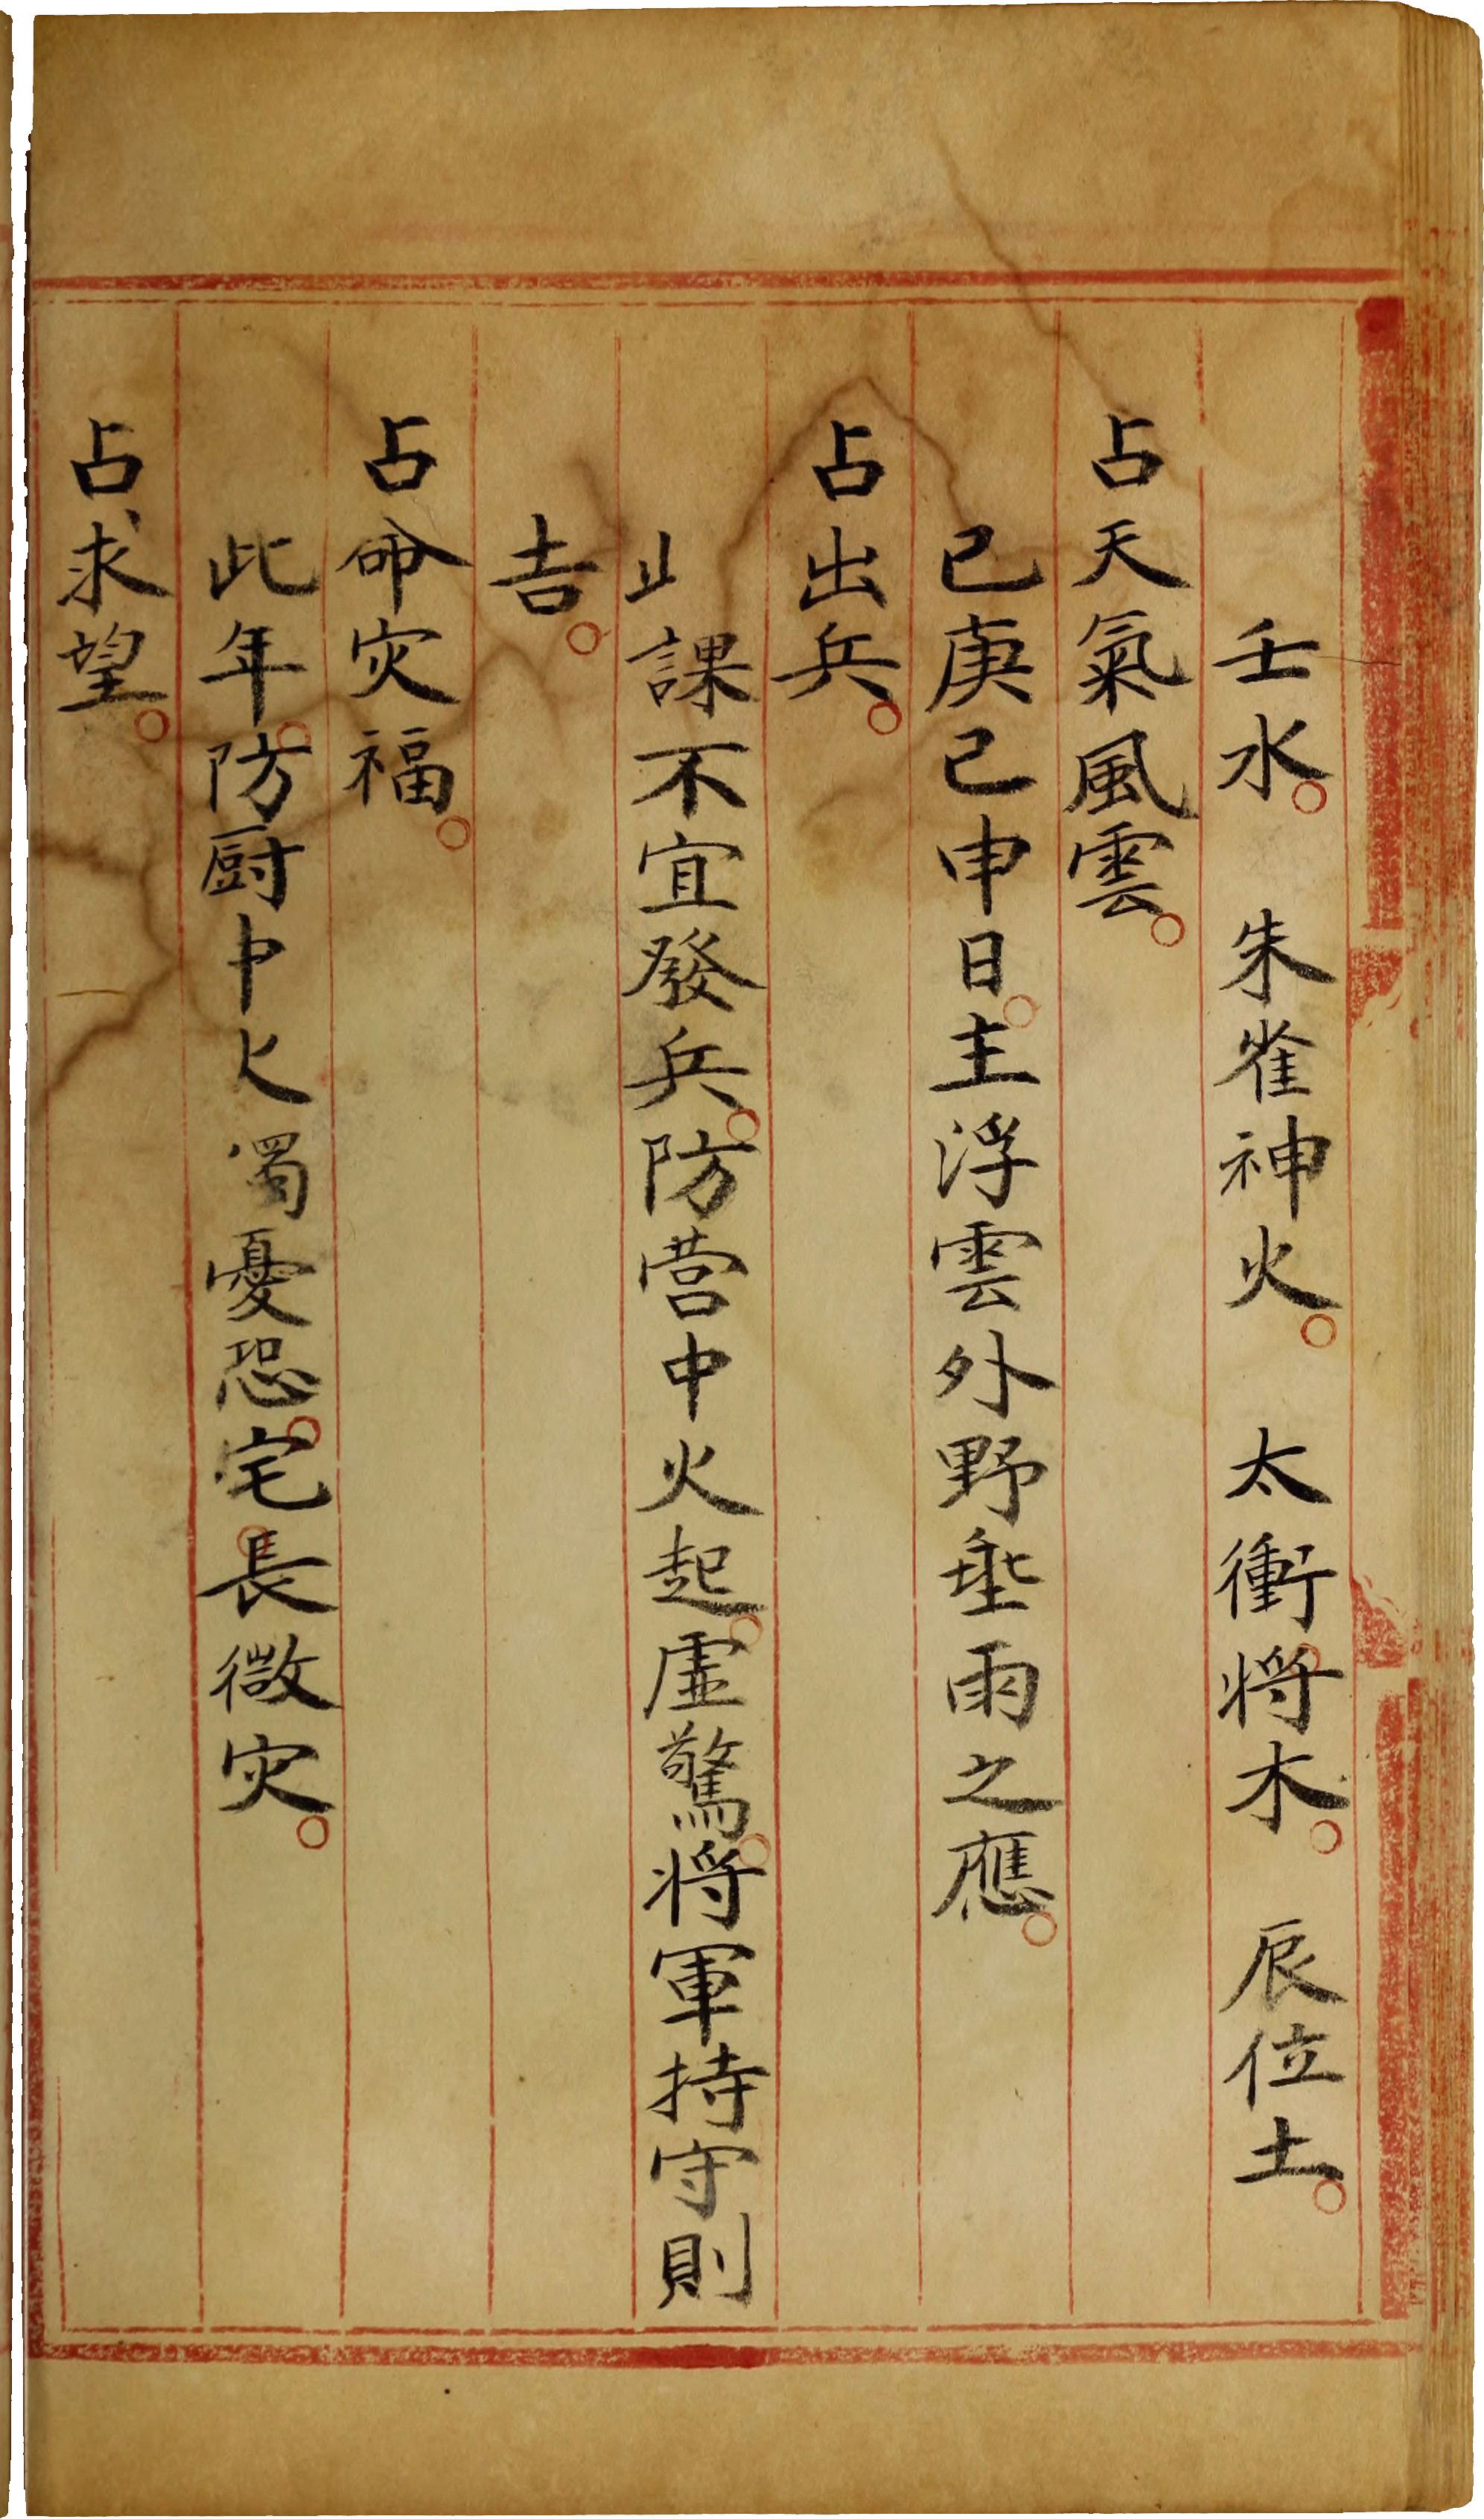 壬水。 朱雀神火。 太衝将木。 辰位土。
占天氣風雲。
已庚已申日。主浮雲外野垂雨之應。
占出兵。
止課不宜發兵。防营中火起。虛驚。将軍持守則
吉。
占命灾福。
此年。防厨中火 濁憂恐。宅長微灾。
占求望。